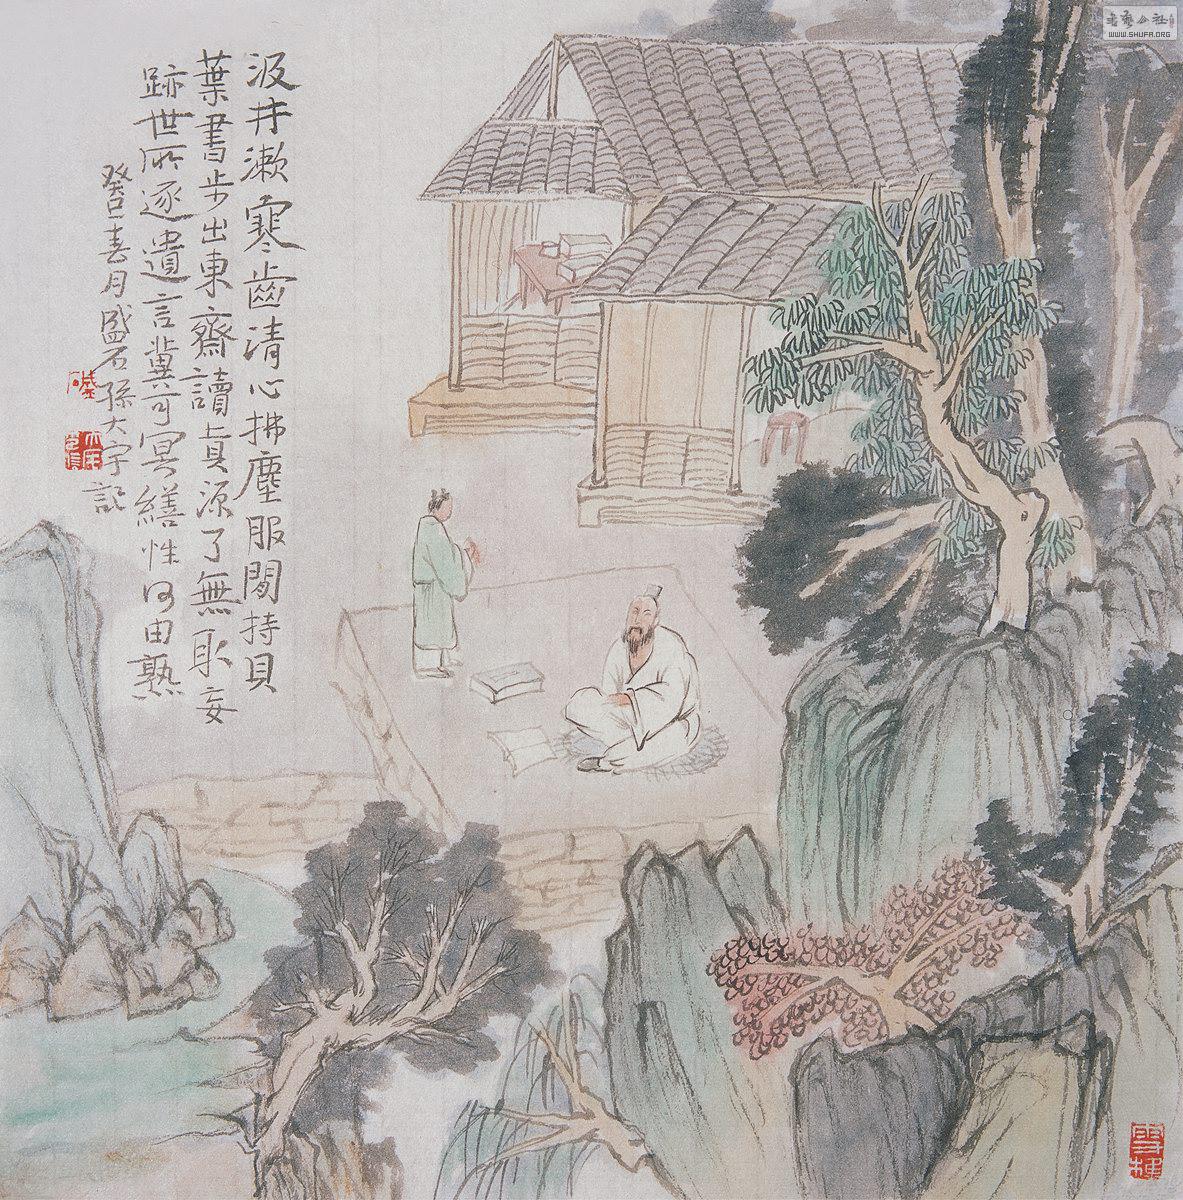 汲井漱寒齒清心拂塵服閒持貝
葉書步出東齋讀真源了無取妄
跡世所逐遺言冀可冥繕性何由熟
癸巳春月盛石孫大宇記
WWW.SHUFA.ORG